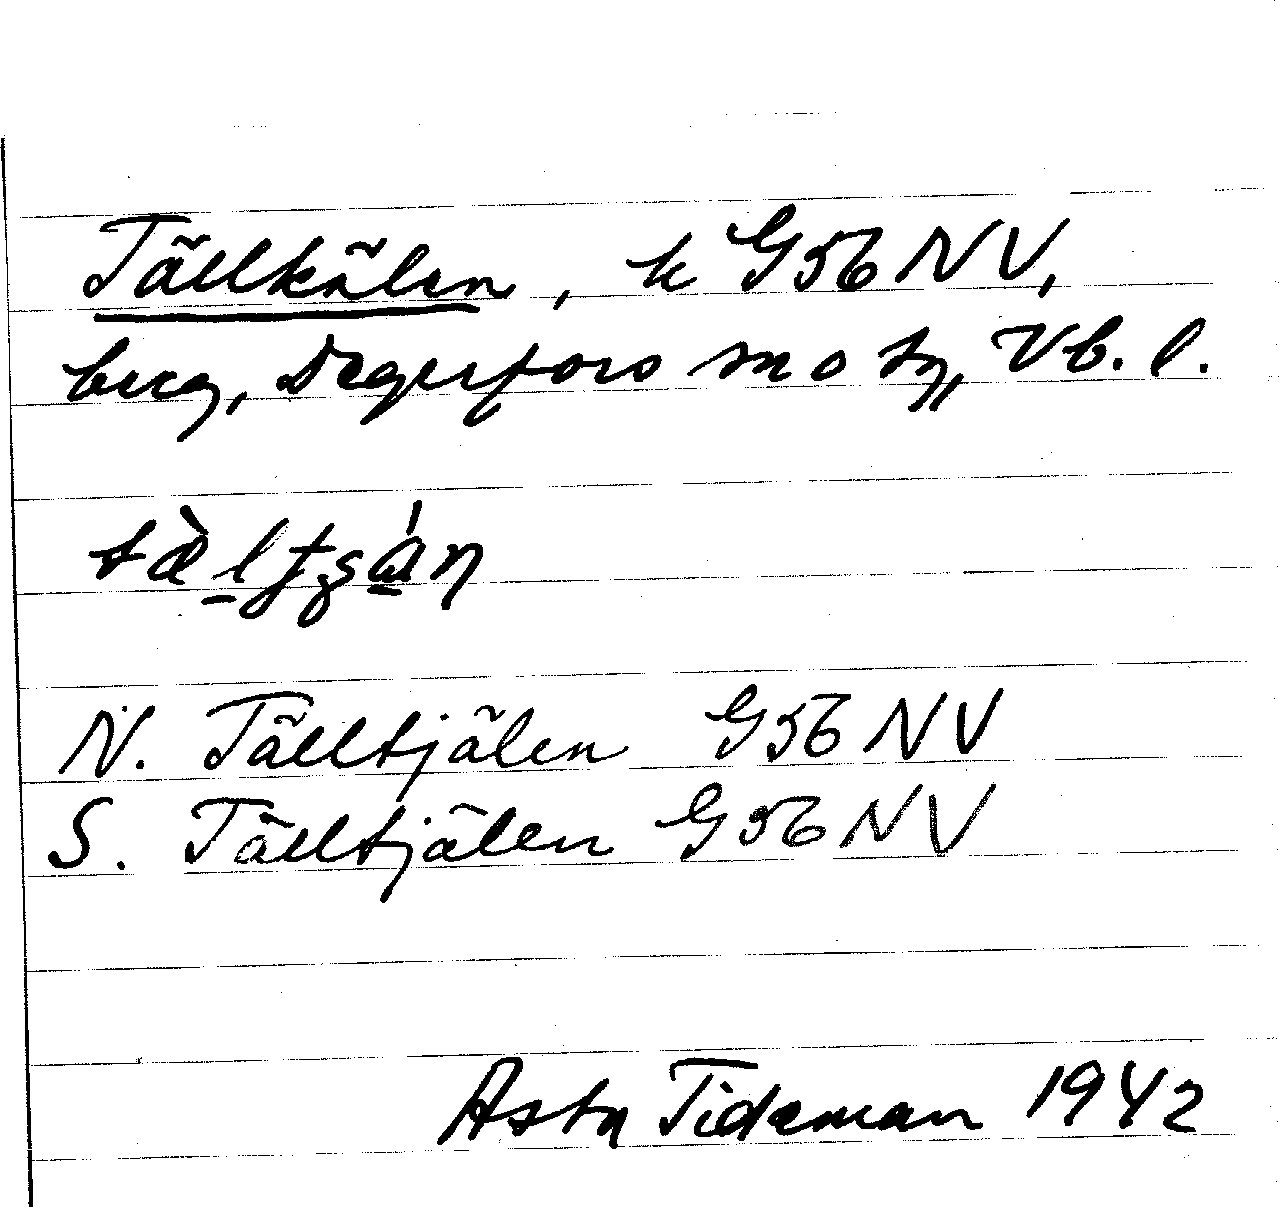 Tällkälen, k G56 NV,
berg, Degerfors sn o tg, Vb. l.
N. Tälltjälen G56 NV
S. Tälltjälen G56 NV
Asta Tideman 1942